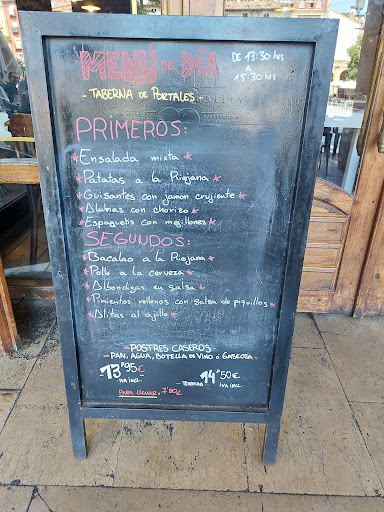 MENÚ DEL DÍA
DE 13:30 hrs
A
15:30 hrs
- TABERNA DE PORTALES -
PRIMEROS:
* Ensalada mixta *
* Patatas a la Riojana *
* Guisantes con jamon crujiente *
* Alubias con chorizo *
* Espaguetis con mejillones *
SEGUNDOS:
* Bacalao a la Riojana *
* Pollo a la cerveza *
* Albondigas en salsa *
* Pimientos rellenos con salsa de piquillos *
* Alitas al ajillo *
- POSTRES CASEROS -
- PAN, AGUA, BOTELLA DE VINO ó GASEOSA -
13'95€ IVA INCL.
- TERRAZA 14'50€ IVA INCL.
PARA LLEVAR: